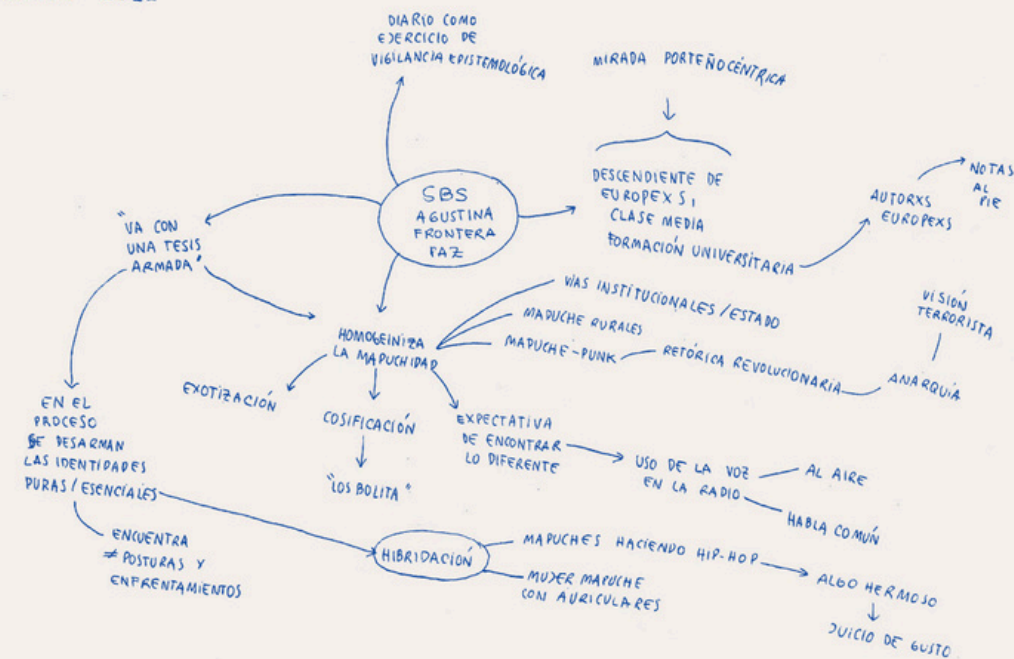 DIARIO COMO
EJERCICIO DE
VIGILANCIA EPISTEMOLÓGICA
MIRADA PORTEÑOCÉNTRICA
SBS
AGUSTINA
FRONTERA
PAZ
DESCENDIENTE DE
EUROPEXS,
CLASE MEDIA
FORMACIÓN UNIVERSITARIA
AUTORXS
EUROPEXS
NOTAS
AL
PIE
"VA CON
UNA TESIS
ARMADA"
HOMOGEINIZA
LA MAPUCHIDAD
VÍAS INSTITUCIONALES/ESTADO
MAPUCHE RURALES
MAPUCHE-PUNK
RETÓRICA REVOLUCIONARIA
ANARQUÍA
VISIÓN
TERRORISTA
EXOTIZACIÓN
COSIFICACIÓN
"LOS BOLITA"
EXPECTATIVA
DE ENCONTRAR
LO DIFERENTE
USO DE LA VOZ
EN LA RADIO
AL AIRE
HABLA COMÚN
EN EL
PROCESO
SE DESARMAN
LAS IDENTIDADES
PURAS/ESENCIALES
ENCUENTRA
≠ POSTURAS Y
ENFRENTAMIENTOS
HIBRIDACIÓN
MAPUCHES HACIENDO HIP-HOP
MUJER MAPUCHE
CON AURICULARES
ALGO HERMOSO
JUICIO DE GUSTO.